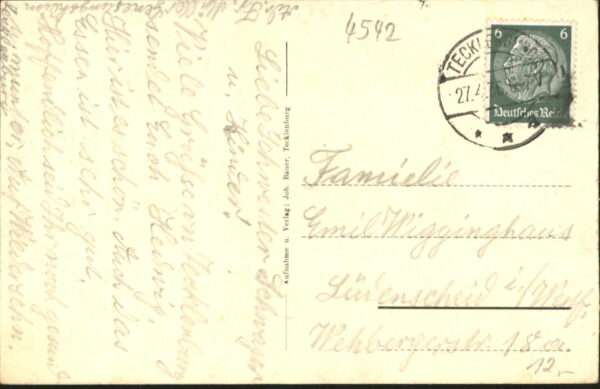 4542
TECKLENBURG
27.4
6 6
Deutsches Reich
Aufnahme u. Verlag: Joh. Bauer, Tecklenburg
Familie
Emil Wigginghaus
Lüdenscheid i./Westf.
Wehbergerstr. 18a.
12,-
Liebe Schwester Schwager
u. Kinder!
Viele Grüße aus Tecklenburg
sendet Euch Hedwig,
Hier ist es schön. Auch das
Essen ist sehr gut,
Hoffentlich seid Ihr noch gesund
u. munter, Auf Wiedersehn.